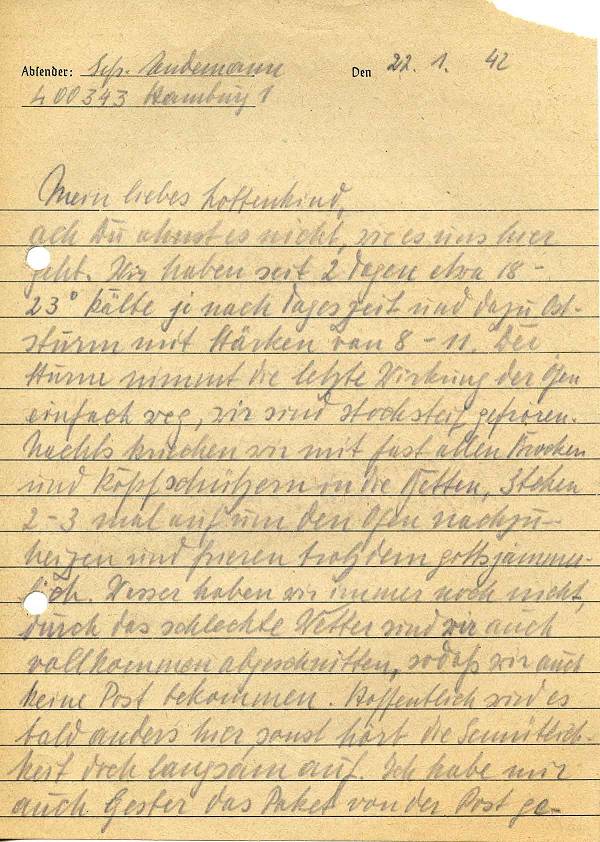 Absender: Lindemann Den 22. 1. 42
L 00343 Hamburg 1
Mein liebes Lottenkind,
ach Du ahnst es nicht, wie es uns hier
geht. Wir haben seit 2 Tagen etwa 18 -
23° Kälte je nach Tageszeit und dazu Ost-
sturm mit Stärken von 8 - 11. Der
Sturm nimmt die letzte Wirkung der Öfen
einfach weg, wir sind stocksteif gefroren.
Nachts kriechen wir mit fast allen Brocken
und Kopfschützern in die Betten, stehen
2-3 mal auf um den Ofen nachzu-
heizen und frieren trotzdem gottsjämmer-
lich. Wasser haben wir immer noch nicht,
durch das schlechte Wetter sind wir auch
vollkommen abgeschnitten, sodaß wir auch
keine Post bekommen. Hoffentlich wird es
bald anders hier, sonst hört die Gemütlich-
keit doch langsam auf. Ich habe mir
auch gester das Paket von der Post ge-